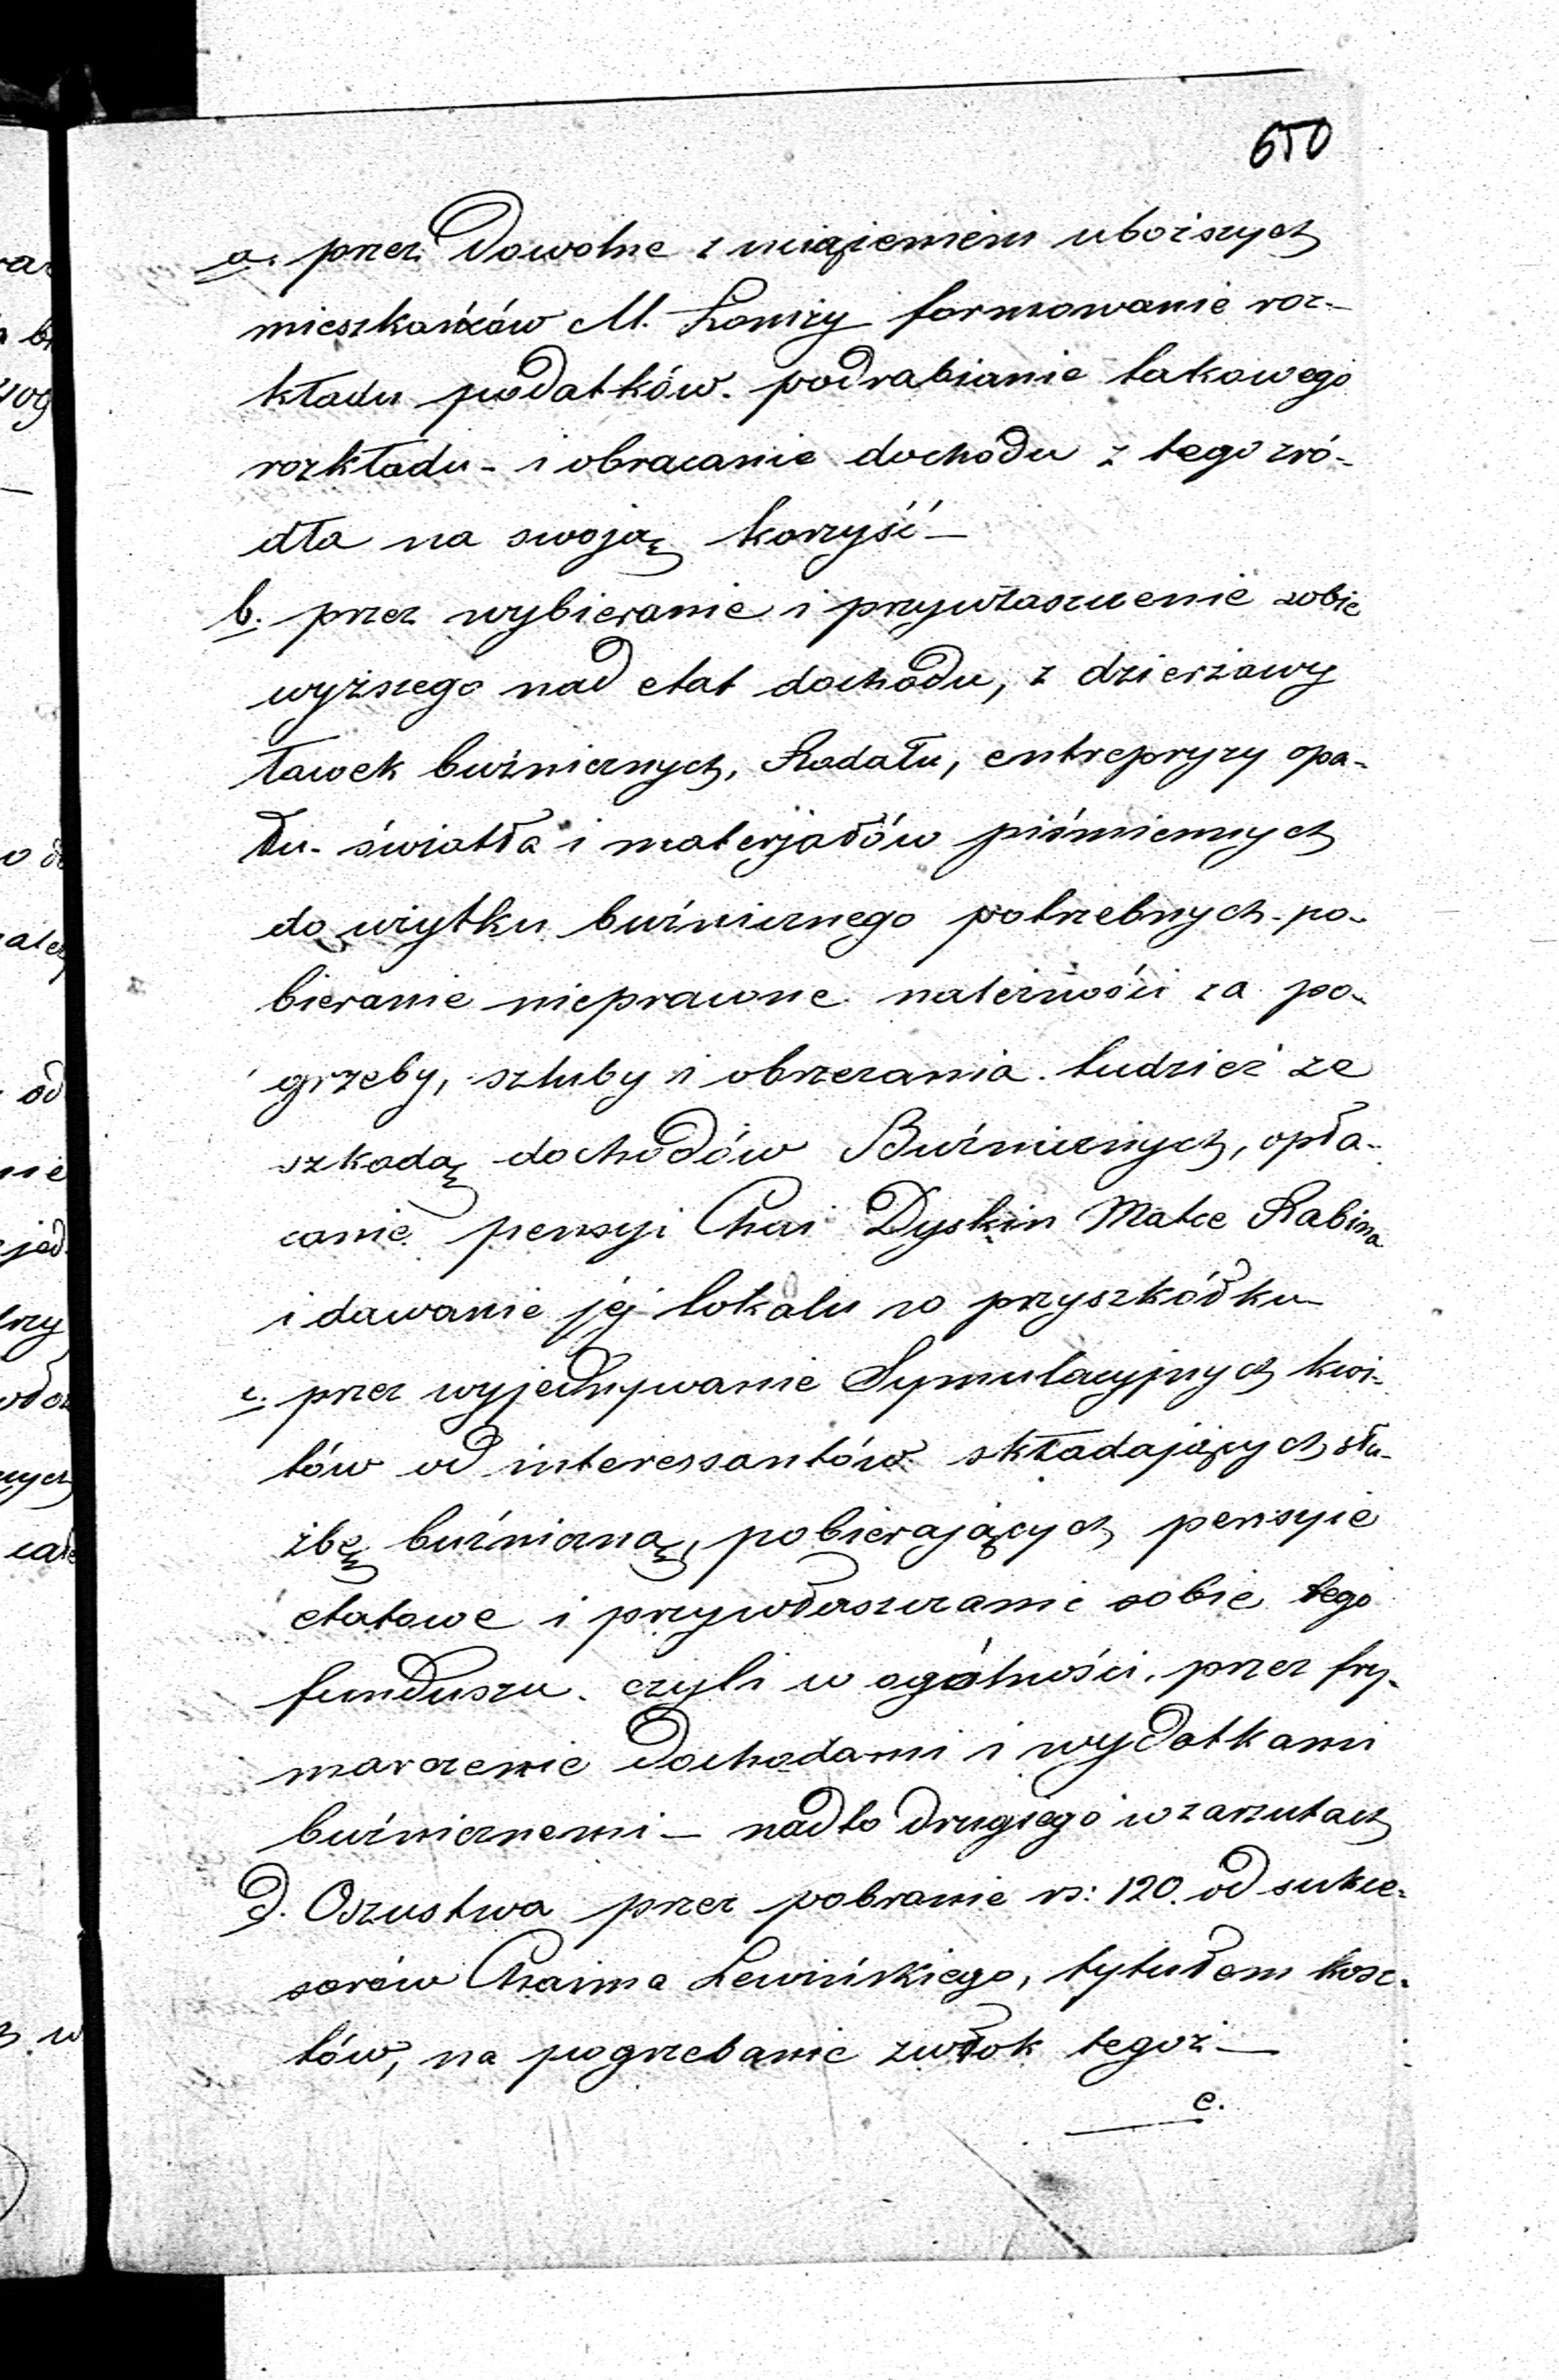 650
a. przez dowolne z uciążeniem uboższych
mieszkańców M. Łomży formowanie roz-
kładu podatków. podrabianie takowego
rozkładu - i obracanie dochodu z tego zró-
dła na swoją korzyść -
b. przez wybieranie i przywłaszczenie sobie
wyższego nad etat dochodu, z dzierżawy
ławek bużnicznych, Rodału, entrepryzy opa-
łu - światła i materjałów piśmiennych
do użytku bużnicznego potrzebnych - po-
bieranie nieprawne należności za po-
grzeby, szluby i obrzezania. tudzież ze
szkodą dochodów Bużnicznych, opła-
canie pensyi Chai Dyskin Matce Rabina
i dawanie jéj lokalu w przyszkółku -
c. przez wyjednywanie Symulacyjnych kwi-
tów od interessantów składających słu-
żbę bużniczną, pobierających pensyie
etatowe i przywłaszczanie sobie tego
funduszu. czyli w ogólności, przez fry-
marczenie dochodami i wydatkami
bużnicznemi - nadto drugiego w zarzutach
d. Oszustwa przez pobranie rs: 120. od sukce-
sorów Chaima Lewińskiego, tytułem kosz-
tów, na pogrzebanie zwłok tegoż -
e.